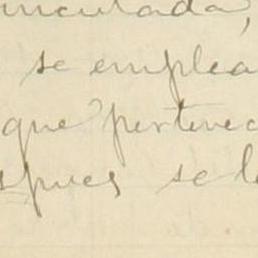 inculada,
se emplea
que pertenec
spues se l